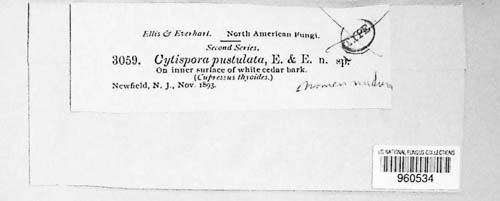 Ellis & Everhart. North American Fungi.
Second Series.
TYPE
3059. Cytispora pustulata, E. & E. n. sp.
On inner surface of white cedar bark.
(Cupressus thyoides.)
Newfield, N. J., Nov. 1893.
nomen nudum
US NATIONAL FUNGUS COLLECTIONS
960534